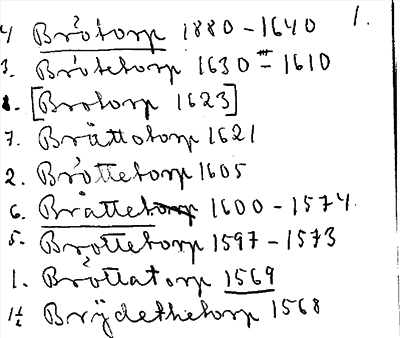 4 Brôtorp 1880-1640 1.
3. Brôtetorp 1630 #- 1610
8. [Brotorp 1623]
7. Bråttotorp 1621
2. Brôttetorp 1605
6. Bråttetorp 1600-1574
5. Brottetorp 1597-1573
1. Brôttatorp 1569
1½ Brÿdethetorp 1568